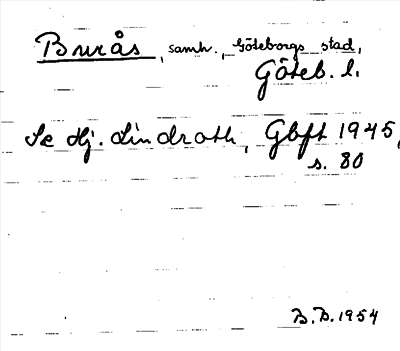 Burås, samh., Göteborgs stad,
Göteb. l.
Se Hj. Lindroth, Gbft 1945,
s. 80
B.B. 1954